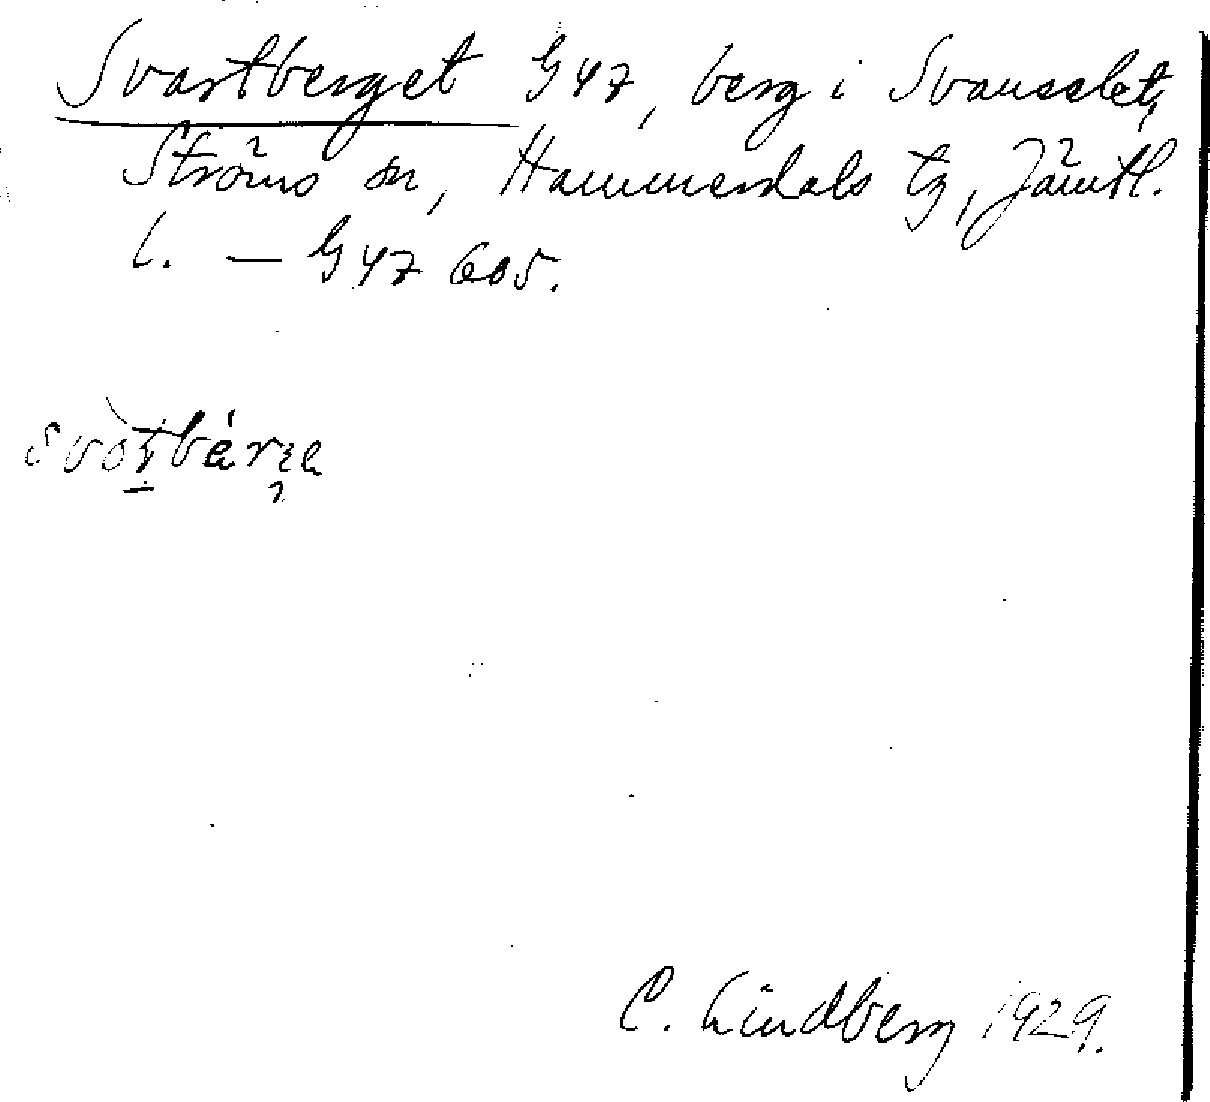 Svartberget G47, berg i Svanselet,
Ströms sn, Hammerdals tg, Jämtl.
l. — G47 605.
C. Lindberg 1929.